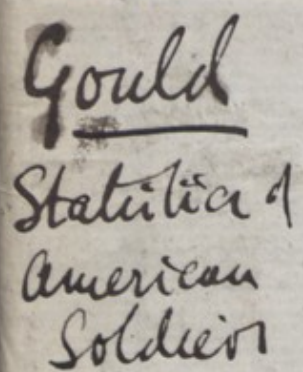 Gould
Statistics of
American
Soldiers